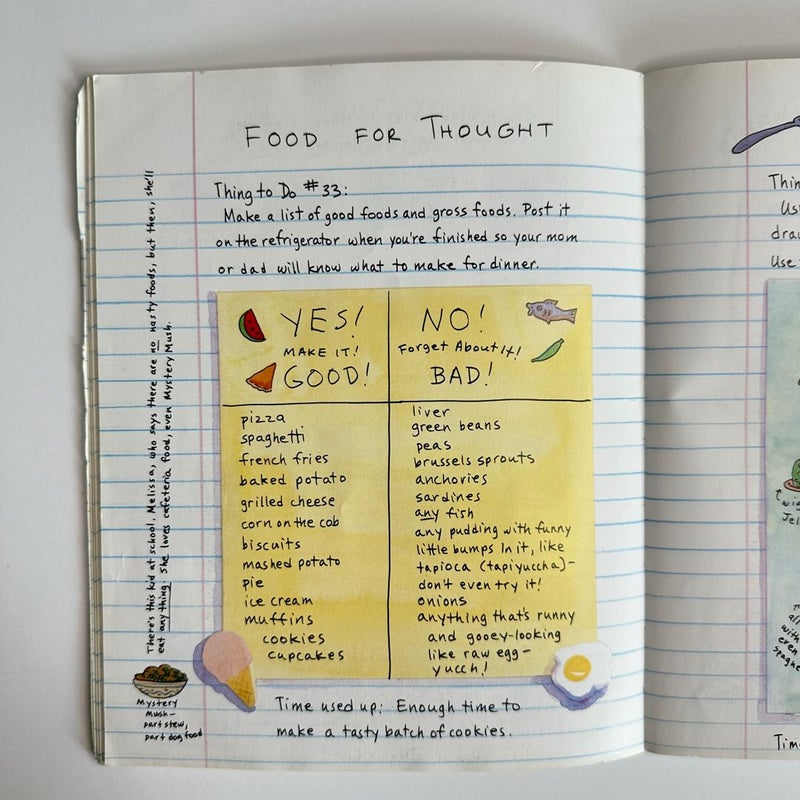 FOOD FOR THOUGHT
Thing to Do #33:
Make a list of good foods and gross foods. Post it
on the refrigerator when you're finished so your mom
or dad will know what to make for dinner.
YES!
MAKE IT!
GOOD!
pizza
spaghetti
french fries
baked potato
grilled cheese
corn on the cob
biscuits
mashed potato
pie
ice cream
muffins
cookies
cupcakes
NO!
Forget About It!
BAD!
liver
green beans
peas
brussels sprouts
anchovies
sardines
any fish
any pudding with funny
little bumps in it, like
tapioca (tapiyuccha)-
don't even try it!
onions
anything that's runny
and gooey-looking
like raw egg-
yucch!
Time used up: Enough time to
make a tasty batch of cookies.
There's this kid at school, Melissa, who says there are no nasty foods, but then, she'll
eat anything. She loves cafeteria food, even Mystery Mush.
Mystery
Mush-
part stew,
part dog food
Thin
Us
dra
Use
Jel
with
even
spaghe
Tim